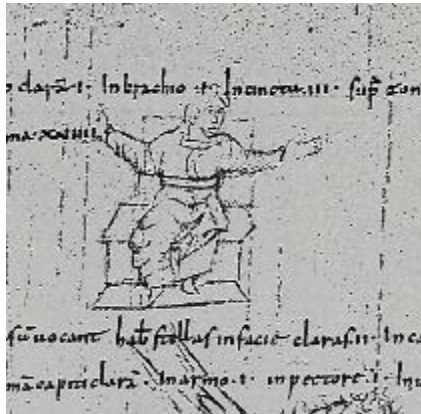 clarā · I · In brachio · I · In cinctu · III · sup̄
ma · XXIIII
uocant hab& stellas in facie claras · II · In
capiti clarā · In armo · I · in pectore · I · In